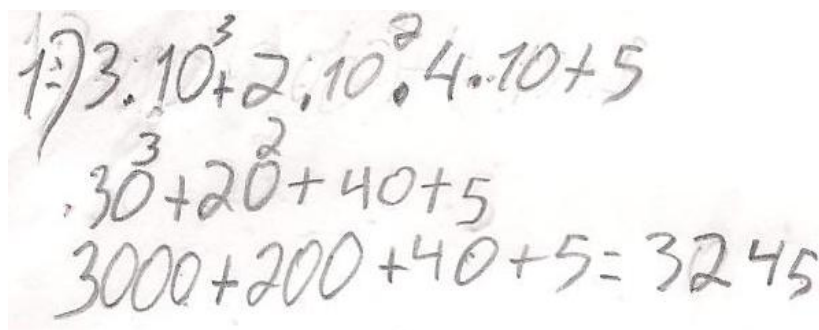 1=) 3.10³+2.10².4.10+5
30³+20²+40+5
3000+200+40+5=3245